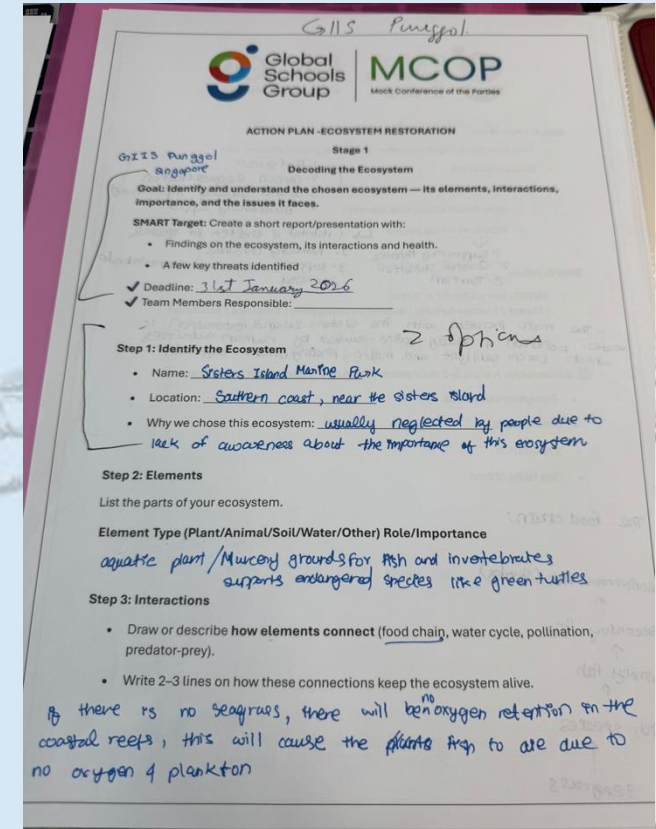 GIIS Punggol
Global
Schools
Group
MCOP
Mock Conference of the Parties
ACTION PLAN -ECOSYSTEM RESTORATION
Stage 1
GIIS Punggol
Singapore
Decoding the Ecosystem
Goal: Identify and understand the chosen ecosystem — its elements, interactions,
importance, and the issues it faces.
SMART Target: Create a short report/presentation with:
• Findings on the ecosystem, its interactions and health.
• A few key threats identified
✓ Deadline: 31st January 2026
✓ Team Members Responsible:
2 options
Step 1: Identify the Ecosystem
• Name: Sisters Island Marine Park
• Location: Southern coast, near the sisters island
• Why we chose this ecosystem: usually neglected by people due to
lack of awareness about the importance of this ecosystem
Step 2: Elements
List the parts of your ecosystem.
Element Type (Plant/Animal/Soil/Water/Other) Role/Importance
aquatic plant / Nursery grounds for fish and invertebrates
supports endangered species like green turtles
Step 3: Interactions
• Draw or describe how elements connect (food chain, water cycle, pollination,
predator-prey).
• Write 2–3 lines on how these connections keep the ecosystem alive.
If there is no seagrass, there will be no oxygen retention in the
coastal reefs, this will cause the plants fish to die due to
no oxygen & plankton